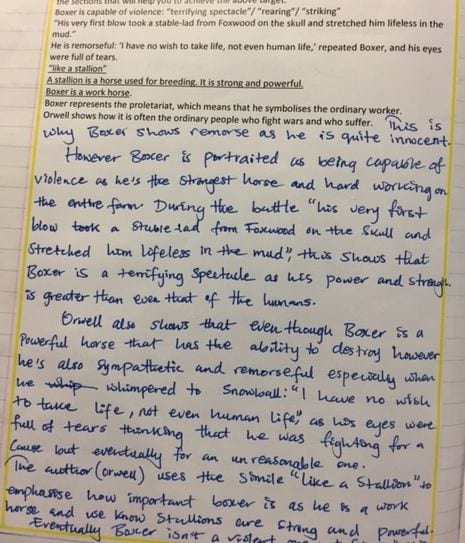 the sections that will help you to achieve the above target.
Boxer is capable of violence: "terrifying spectacle"/ "rearing"/ "striking"
"His very first blow took a stable-lad from Foxwood on the skull and stretched him lifeless in the
mud."
He is remorseful: 'I have no wish to take life, not even human life,' repeated Boxer, and his eyes
were full of tears.
"like a stallion"
A stallion is a horse used for breeding. It is strong and powerful.
Boxer is a work horse.
Boxer represents the proletariat, which means that he symbolises the ordinary worker.
Orwell shows how it is often the ordinary people who fight wars and who suffer. This is
why Boxer shows remorse as he is quite innocent.
However Boxer is portraited as being capable of
violence as he's the strongest horse and hard working on
the entire farm. During the battle "his very first
blow took a stable-lad from Foxwood on the skull and
stretched him lifeless in the mud", this shows that
Boxer is a terrifying spectacle as his power and strength
is greater than even that of the humans.
Orwell also shows that even though Boxer is a
powerful horse that has the ability to destroy however
he's also sympathetic and remorseful especially when
he whip whimpered to Snowball: "I have no wish
to take life, not even human life," as his eyes were
full of tears thinking that he was fighting for a
cause but eventually for an unreasonable one.
The author (orwell) uses the simile "like a Stallion" to
emphasise how important boxer is as he is a work
horse and use know Stallions are strong and powerful.
Eventually Boxer isn't a